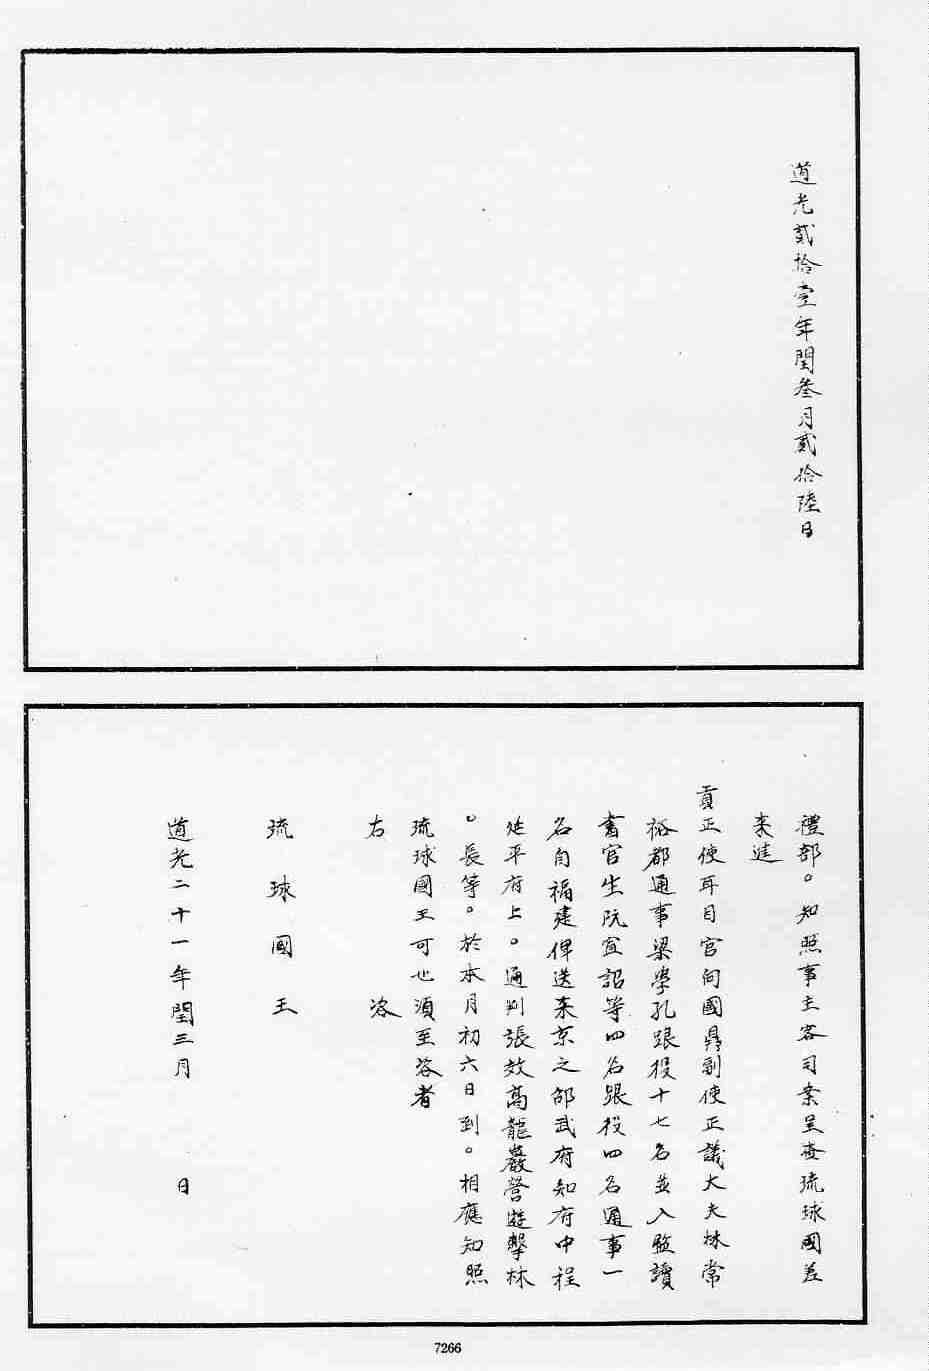 道光貳拾壹年閏叁月貳拾陸日
禮部。知照事主客司案呈查琉球國差
來進
貢正使耳目官向國鼎副使正議大夫林常
裕都通事梁學孔跟役十七名並入監讀
書官生阮宣詔等四名跟役四名通事一
名自福建俾送來京之邵武府知府中程
延平府上。通判張效高龍巖營遊擊林
。長等。於本月初六日到。相應知照
琉球國王可也須至咨者
右咨
琉球國王
道光二十一年閏三月日
7266